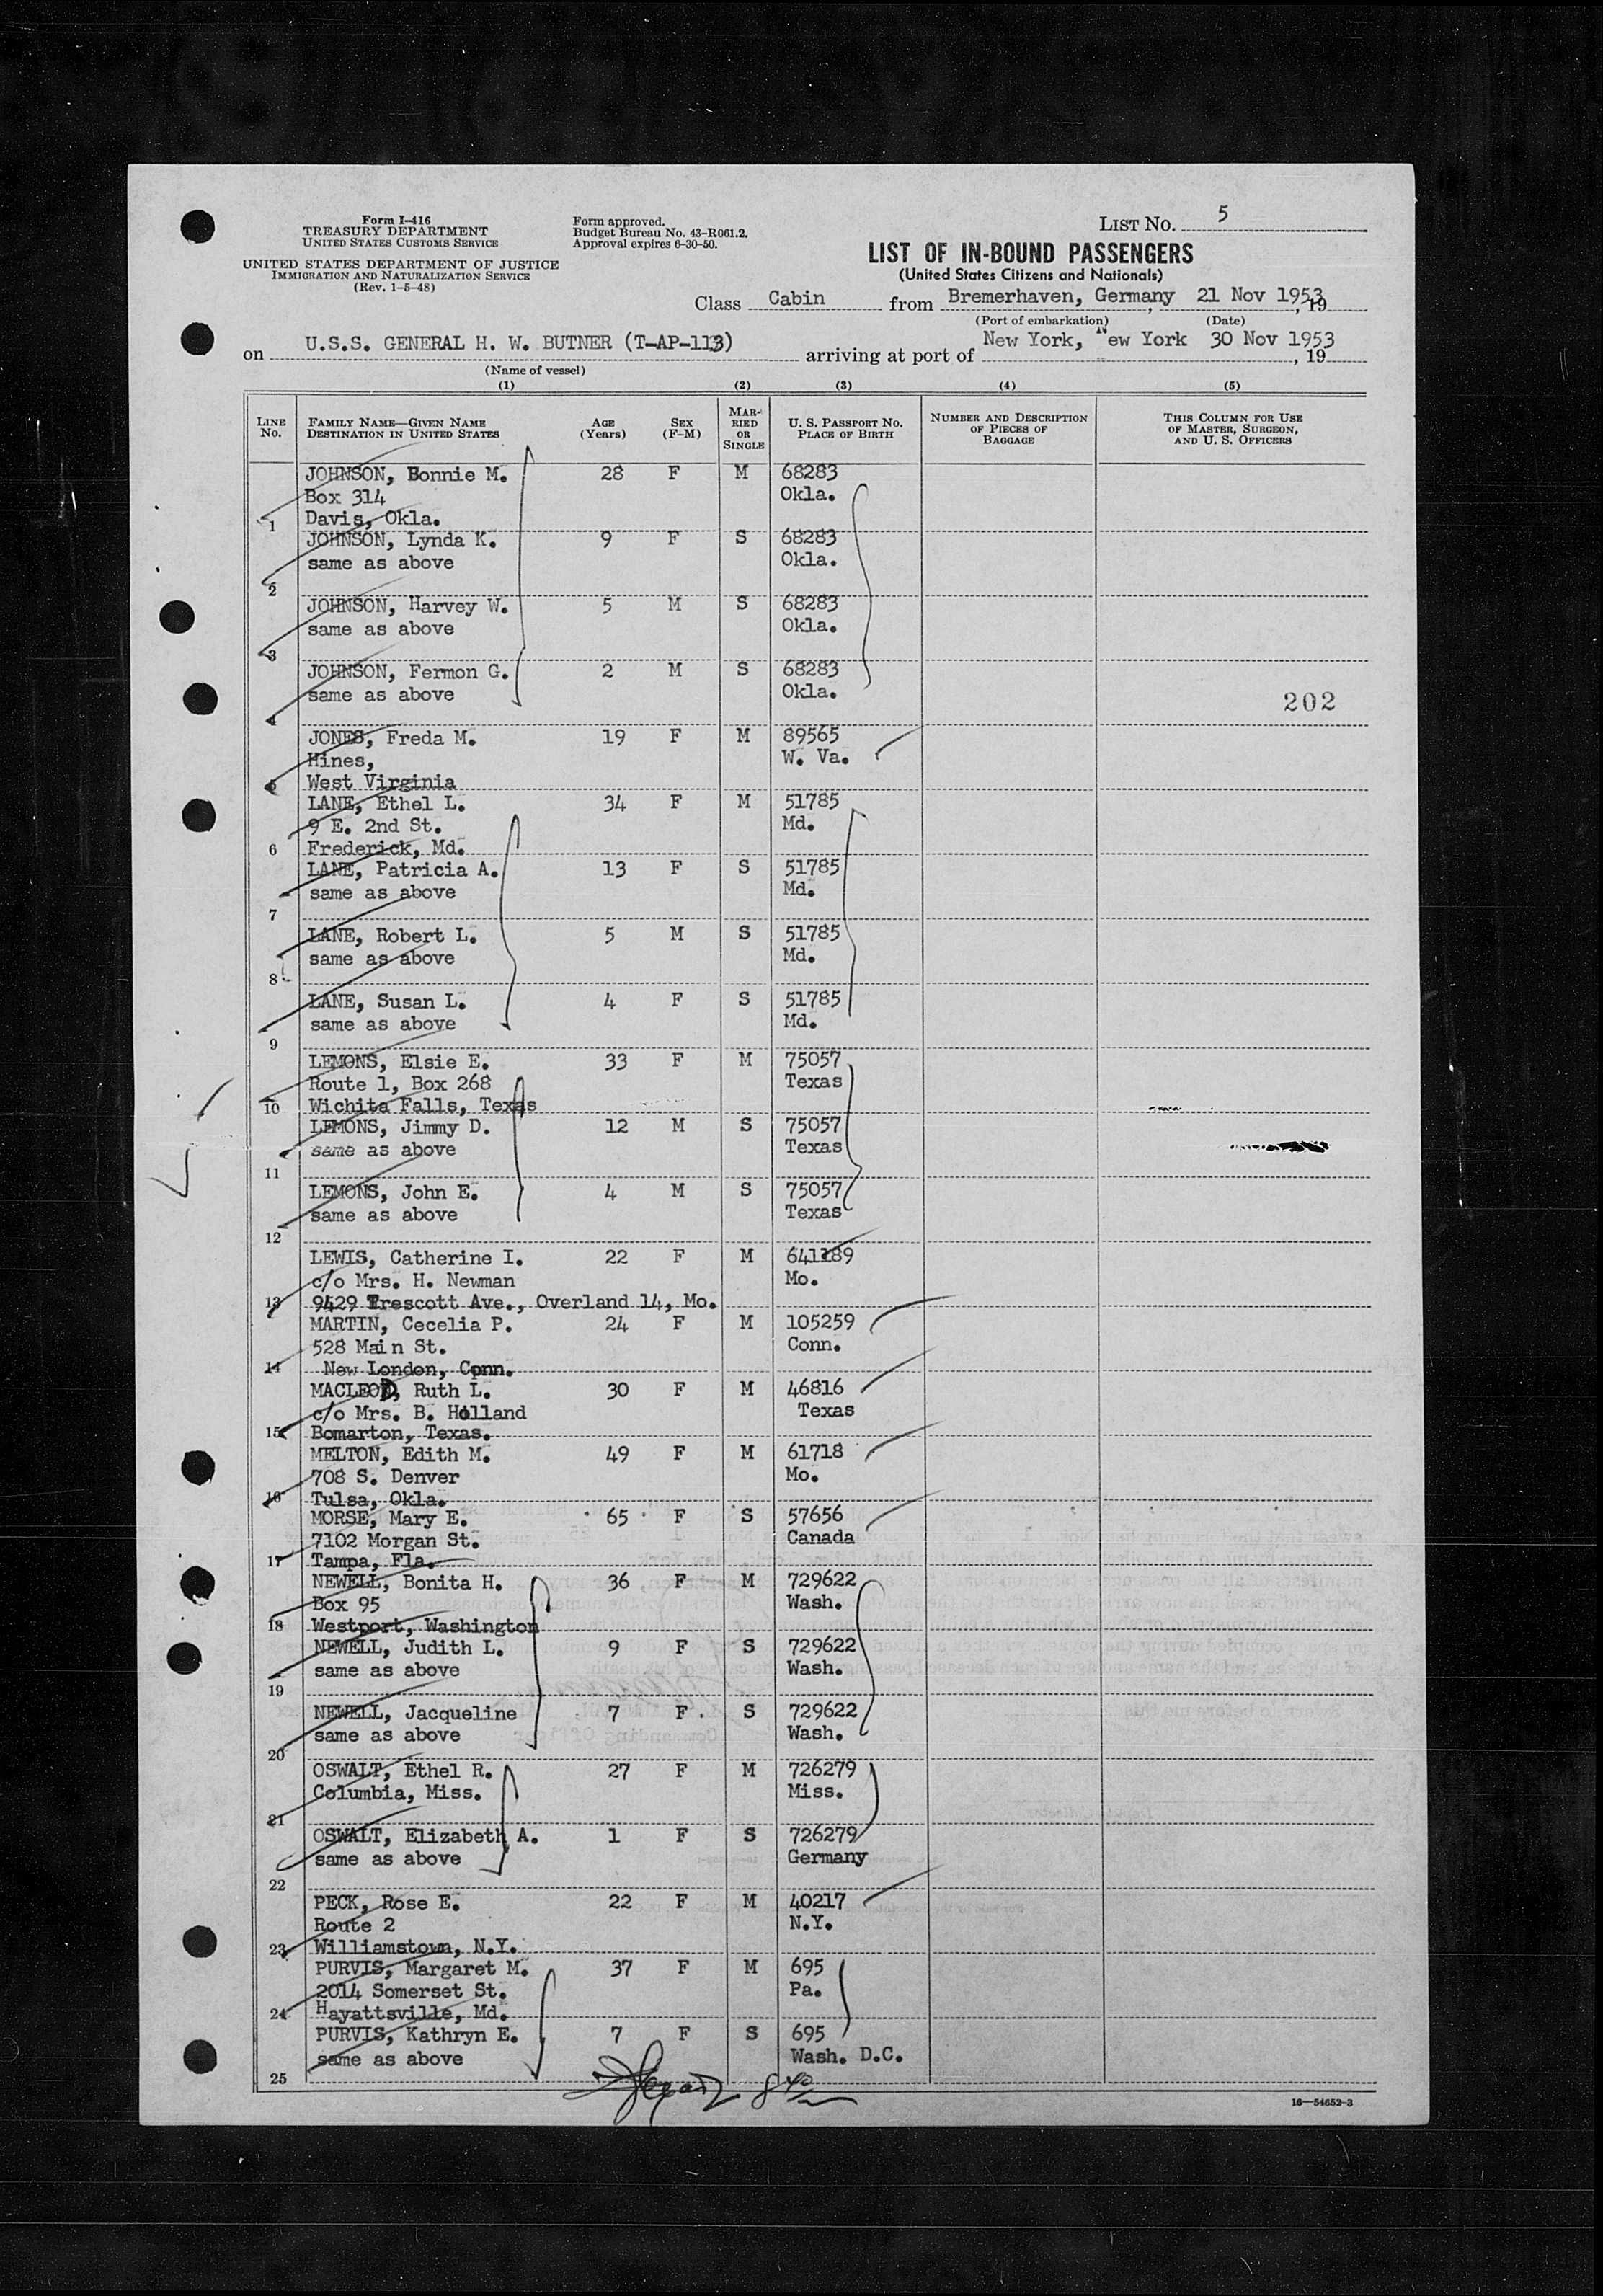 Form I-416
TREASURY DEPARTMENT
UNITED STATES CUSTOMS SERVICE
UNITED STATES DEPARTMENT OF JUSTICE
IMMIGRATION AND NATURALIZATION SERVICE
(Rev. 1-5-48)
Form approved.
Budget Bureau No. 43-R061.2.
Approval expires 6-30-50.
LIST No. 5
LIST OF IN-BOUND PASSENGERS
(United States Citizens and Nationals)
Class Cabin from Bremerhaven, Germany, 21 Nov 1953, 19
(Port of embarkation) (Date)
on U.S.S. GENERAL H. W. BUTNER (T-AP-113) arriving at port of New York, New York 30 Nov 1953, 19
(Name of vessel)
(1) (2) (3) (4) (5)
LINE No. FAMILY NAME—GIVEN NAME DESTINATION IN UNITED STATES AGE (Years) SEX (F-M) MARRIED OR SINGLE U. S. PASSPORT NO. PLACE OF BIRTH NUMBER AND DESCRIPTION OF PIECES OF BAGGAGE THIS COLUMN FOR USE OF MASTER, SURGEON, AND U. S. OFFICERS
JOHNSON, Bonnie M. 28 F M 68283
Box 314 Okla.
1 Davis, Okla.
JOHNSON, Lynda K. 9 F S 68283
same as above Okla.
2
JOHNSON, Harvey W. 5 M S 68283
same as above Okla.
3
JOHNSON, Fermon G. 2 M S 68283
same as above Okla.
202
4
JONES, Freda M. 19 F M 89565
Hines, W. Va.
5 West Virginia
LANE, Ethel L. 34 F M 51785
9 E. 2nd St. Md.
6 Frederick, Md.
LANE, Patricia A. 13 F S 51785
same as above Md.
7
LANE, Robert L. 5 M S 51785
same as above Md.
8
LANE, Susan L. 4 F S 51785
same as above Md.
9
LEMONS, Elsie E. 33 F M 75057
Route 1, Box 268 Texas
10 Wichita Falls, Texas
LEMONS, Jimmy D. 12 M S 75057
same as above Texas
11
LEMONS, John E. 4 M S 75057
same as above Texas
12
LEWIS, Catherine I. 22 F M 641189
c/o Mrs. H. Newman Mo.
13 9429 Trescott Ave., Overland 14, Mo.
MARTIN, Cecelia P. 24 F M 105259
528 Main St. Conn.
14 New London, Conn.
MACLEOD, Ruth L. 30 F M 46816
c/o Mrs. B. Holland Texas
15 Bomarton, Texas.
MELTON, Edith M. 49 F M 61718
708 S. Denver Mo.
16 Tulsa, Okla.
MORSE, Mary E. 65 F S 57656
7102 Morgan St. Canada
17 Tampa, Fla.
NEWELL, Bonita H. 36 F M 729622
Box 95 Wash.
18 Westport, Washington
NEWELL, Judith L. 9 F S 729622
same as above Wash.
19
NEWELL, Jacqueline 7 F S 729622
same as above Wash.
20
OSWALT, Ethel R. 27 F M 726279
Columbia, Miss. Miss.
21
OSWALT, Elizabeth A. 1 F S 726279
same as above Germany
22
PECK, Rose E. 22 F M 40217
Route 2 N.Y.
23 Williamstown, N.Y.
PURVIS, Margaret M. 37 F M 695
2014 Somerset St. Pa.
24 Hayattsville, Md.
PURVIS, Kathryn E. 7 F S 695
same as above Wash. D.C.
25
16—54652-3